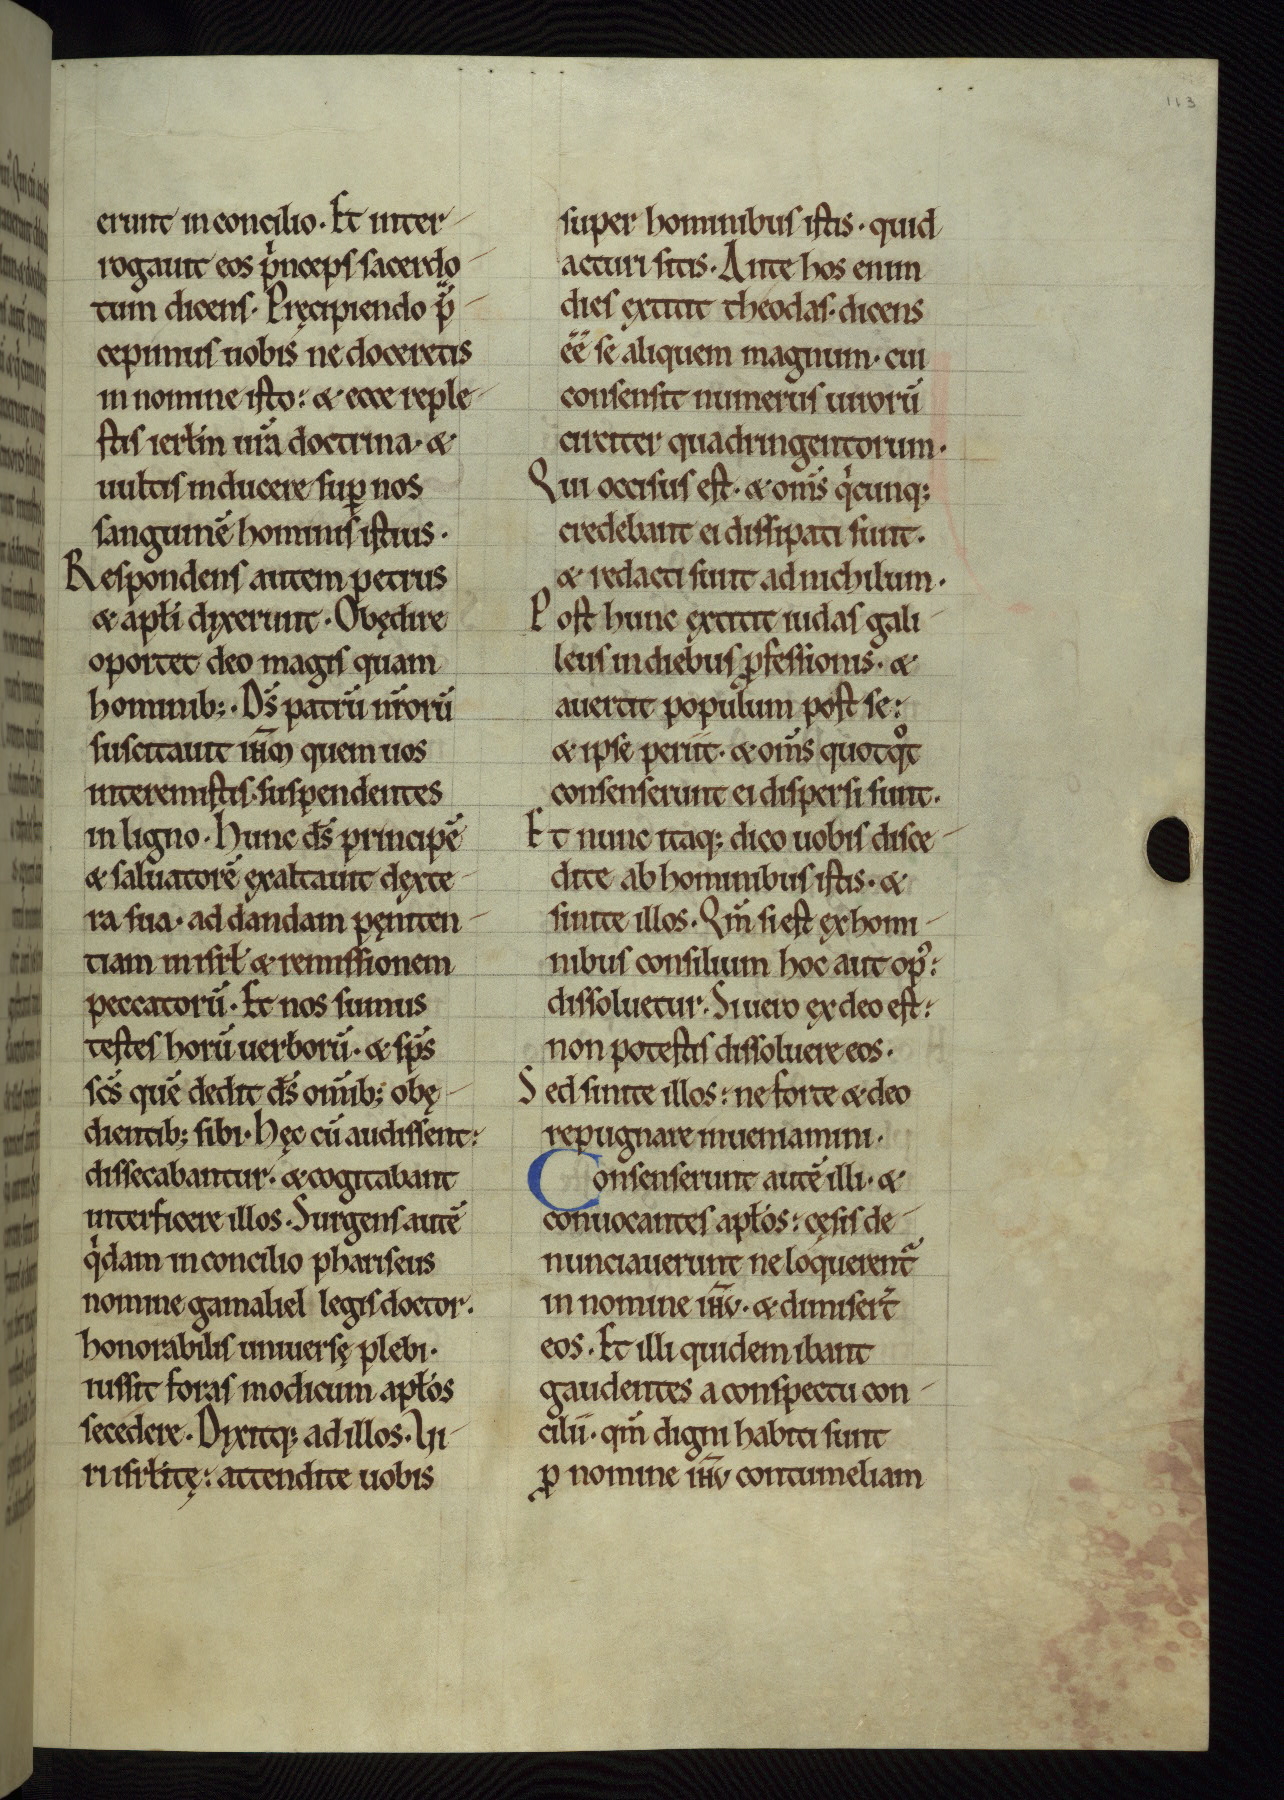 113
erunt in concilio. Et inter-
rogauit eos p̍nceps sacerdo-
tum dicens. Pręcipiendo p̄-
cepimus uobis ne doceretis
in nomine isto: & ecce reple-
stis ierłm ur̄a doctrina. &
uultis inducere suꝑ nos
sanguinē hominis istius.
Respondens autem petrus
& apłi dyxerunt. Obędire
oportet deo magis quam
hominib;. Ds̄ patrū nr̄orū
suscitauit ih̄m quem uos
interemistis. suspendentes
in ligno. Hunc ds̄ principē
& saluatorē exaltauit dexte-
ra sua. ad dandam pęniten-
tiam in isrł & remissionem
peccatorū. Et nos sumus
testes horū uerborū. & sp̄s
sc̄s quē dedit ds̄ om̄ib; obę-
dientib; sibi. Hęc cū audissent:
dissecabantur. & cogitabant
interficere illos. Surgens autē
q̍dam in concilio phariseus
nomine gamaliel legis doctor.
honorabilis uniuersę plebi.
iussit foras modicum apłos
secedere. Dyxitq; ad illos. Ui-
ri isrłitę: attendite uobis
super hominibus istis. quid
acturi sitis. Ante hos enim
dies extitit theodas. dicens
ēē se aliquem magnum. cui
consensit numerus uirorū
circiter quadringentorum.
Qui occisus est. & om̄s q̍cunq;
credebant ei dissipati sunt.
& redacti sunt ad nichilum.
Post hunc extitit iudas gali-
leus in diebus ꝓfessionis. &
auertit populum post se:
& ipse periit. & om̄s quotqͦt
consenserunt ei dispersi sunt.
Et nunc itaq; dico uobis disce-
dite ab hominibus istis. &
sinite illos. Qm̄ si est ex homi-
nibus consilium hoc aut opꝰ:
dissoluetur. Si uero ex deo est:
non potestis dissoluere eos.
Sed sinite illos: ne forte & deo
repugnare inueniamini.
Consenserunt autē illi. &
conuocantes apłos: cęsis de-
nunciauerunt ne loquerent᷑
in nomine ih̄u. & dimiser̄t
eos. Et illi quidem ibant
gaudentes a conspectu con-
cilii. qm̄ digni habiti sunt
ꝓ nomine ih̄u contumeliam